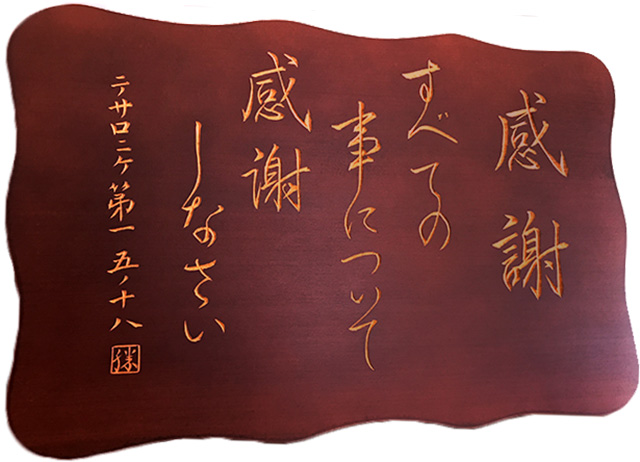 感謝
すべての
事について
感謝
しなさい
テサロニケ第一 五ノ十八
勝